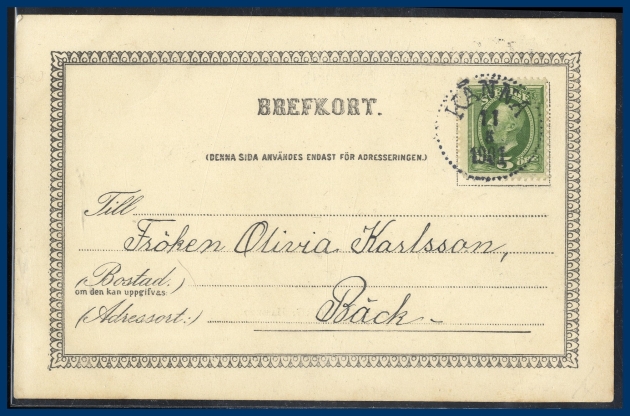 BREFKORT.
(DENNA SIDA ANVÄNDES ENDAST FÖR ADRESSERINGEN.)
Till
Fröken Olivia Karlsson,
(Bostad:)
om den kan uppgifvas
Bäck
(Adressort:)
11
5